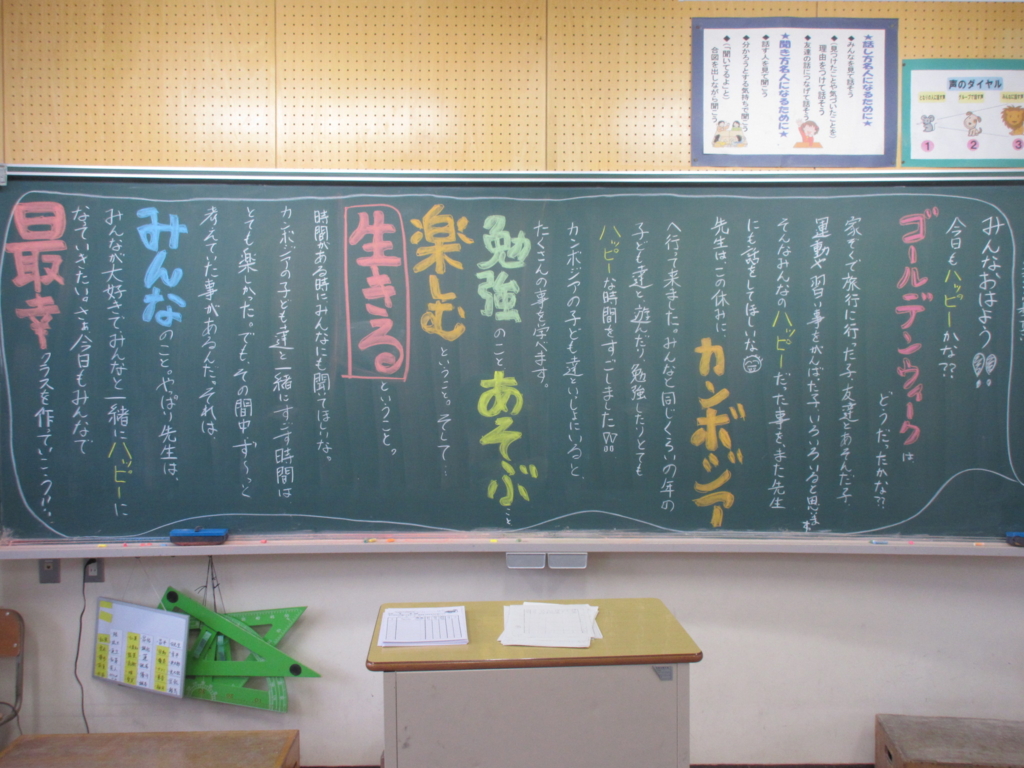 ★話し方名人になるために★
◆みんなを見て話そう
◆（見つけたことや気づいたことを）
理由をつけて話そう
◆友達の話につなげて話そう
★聞き方名人になるために★
◆話す人を見て聞こう
◆分かろうとする気持ちで聞こう
◆（「聞いてるよこと」）
合図を出しながら聞こう
声のダイヤル
1
2
3
みんなおはよう!!
今日もハッピーかな??
ゴールデンウィークは
どうだったかな??
家ぞくで旅行に行った子、友達とあそんだ子、
運動や習い事をがんばった子、いろいろいると思います。
そんなみんなのハッピーだった事をまた先生
にも話をしてほしいな
先生はこの休みに
カンボジア
へ行って来ました。みんなと同じくらいの年の
子ども達と遊んだり勉強したりとても
ハッピーな時間をすごしました!!
カンボジアの子ども達といっしょにいると、
たくさんの事を学べます。
勉強のこと あそぶこと
楽しむということ。そして…
生きるということ。
時間がある時にみんなにも聞いてほしいな。
カンボジアの子ども達と一緒にすごす時間は
とても楽しかった。でも、その間中ず〜っと
考えていた事があるんだ、それは、
みんなのこと。やっぱり先生は、
みんなが大好きでみんなと一緒にハッピーに
なっていきたい。さぁ今日もみんなで
最幸クラスを作っていこう!!